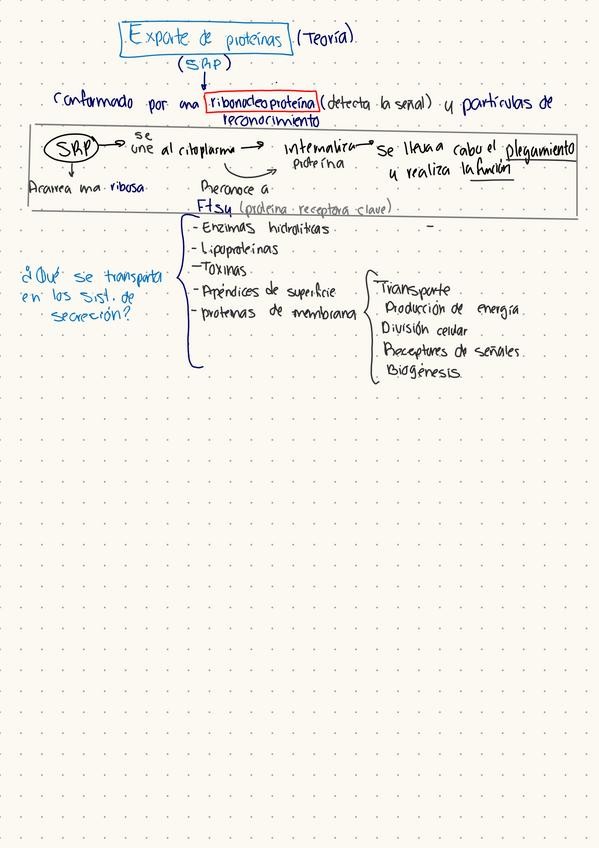 Exporte de proteínas (Teoría).
(SRP)
Conformado por una ribonucleoproteína (detecta la señal) y partículas de
reconocimiento
SRP → se une al citoplasma → internaliza proteína → se lleva a cabo el plegamiento
y realiza la función
Acarrea una ribosa
Reconoce a
Ftsy (proteína receptora clave)
¿Qué se transporta
en los sist. de
secreción?
- Enzimas hidrolíticas
- Lipoproteínas
- Toxinas
- Apéndices de superficie
- proteínas de membrana
Transporte
Producción de energía
División celular
Receptores de señales
Biogénesis